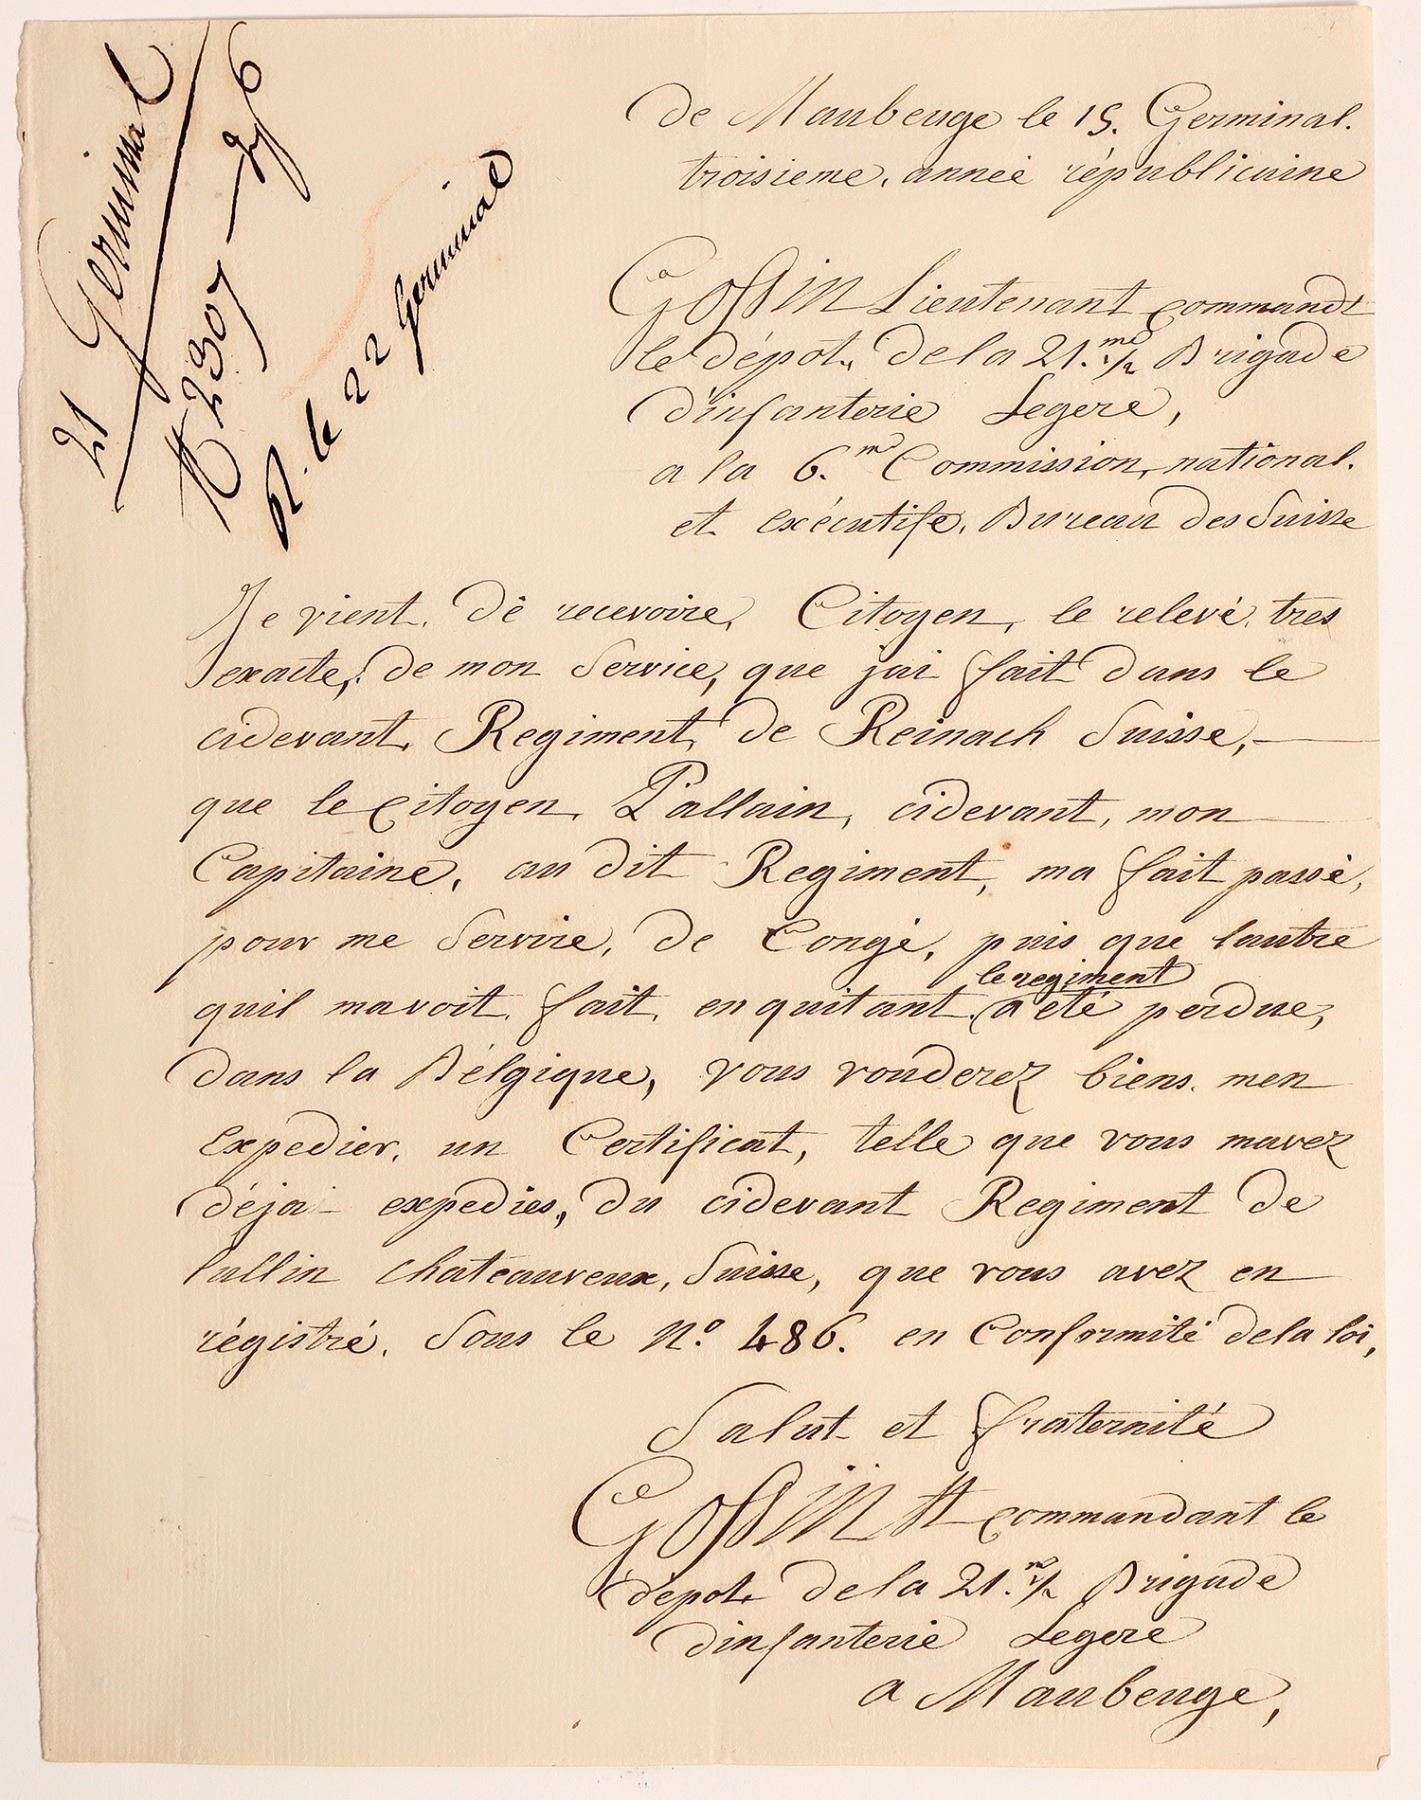 21 Germinal
N 2307
R. le 22 Germinal
de Maubeuge le 15. Germinal.
troisieme. annee républicaine
Gossin Lieutenant commandt
le dépot. de la 21.me 1/2 Brigade
dinfanterie Legere,
a la 6.me Commission, national.
et exécutife. Bureau des Suisse
Je vient. dé recevoire, Citoyen, le relevé. tres
exacte, de mon Service, que jai fait dans le
cidevant. Regiment, de Reinach Suisse,
que le Citoyen. Pallain, cidevant, mon
Capitaine. au dit Regiment, ma fait passé,
pour me Servire, de Congé, puis que lautre
quil mavoit. fait. en quitant le regiment a été perdue,
dans la Bélgique, vous vouderez biens. men
expedier. un Certificat, telle que vous mavez
déja expedies, du cidevant Regiment de
lullin chateauveux, Suisse, que vous avez en
régistré. Sous le No. 486. en Conformité de la loi,
Salut et fraternité
Gossin Lt commandant le
depot. de la 21.me 1/2 Brigade
dinfanterie Legere
a Maubeuge,